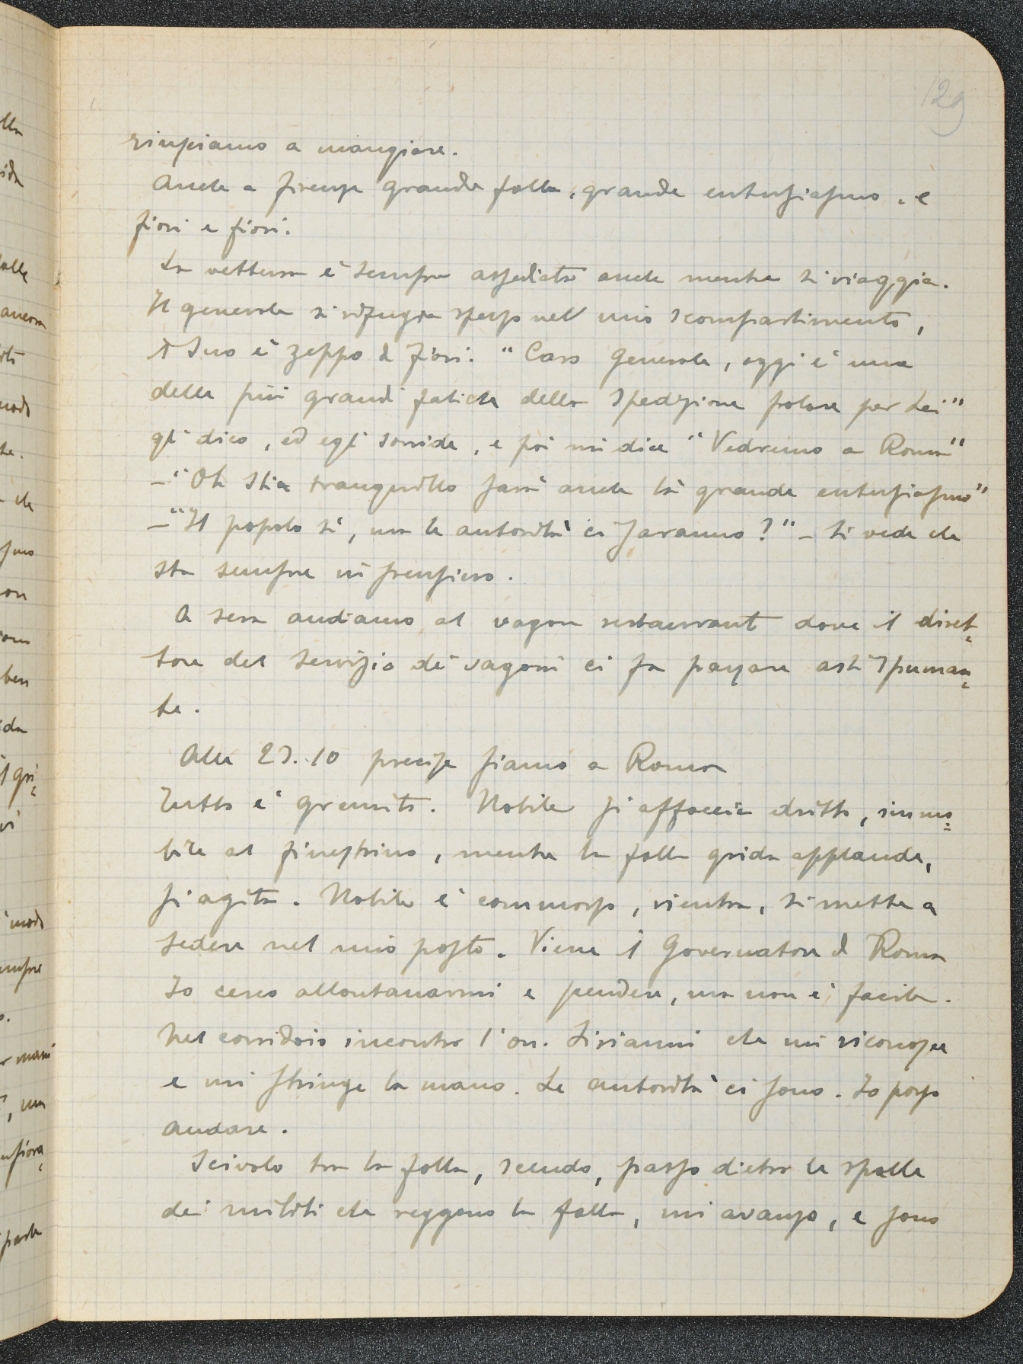 129
riusciamo a mangiare.
Anche a Firenze grande folla, grande entusiasmo, e
fiori e fiori.
La vettura è sempre assediata anche mentre si viaggia.
Il generale si rifugia spesso nel mio scompartimento,
il suo è zeppo di fiori. "Caro Generale, oggi è una
delle più grandi fatiche della spedizione polare per Lei"
gli dico, ed egli sorride, e poi mi dice "Vedremo a Roma"
–"Oh stia tranquillo sarà anche là grande entusiasmo"
–"Il popolo sì, ma le autorità ci saranno?" – Si vede che
sta sempre in pensiero.
A sera andiamo al vagon restaurant dove il diret-
tore del servizio dei vagoni ci fa pagare asti spuman-
te.
Alle 23.10 precise siamo a Roma
Tutto è gremito. Nobile si affaccia dritto, immo=
bile al finestrino, mentre la folla grida applaude,
si agita. Nobile è commosso, rientra, si mette a
sedere nel mio posto. Viene il Governatore di Roma
Io cerco allontanarmi e scendere, ma non è facile.
Nel corridoio incontro l'on. Lisianni che mi riconosce
e mi stringe la mano. Le autorità ci sono. Io posso
andare.
Scivolo tra la folla, scendo, passo dietro le spalle
dei militi che reggono la folla, mi avanzo, e sono